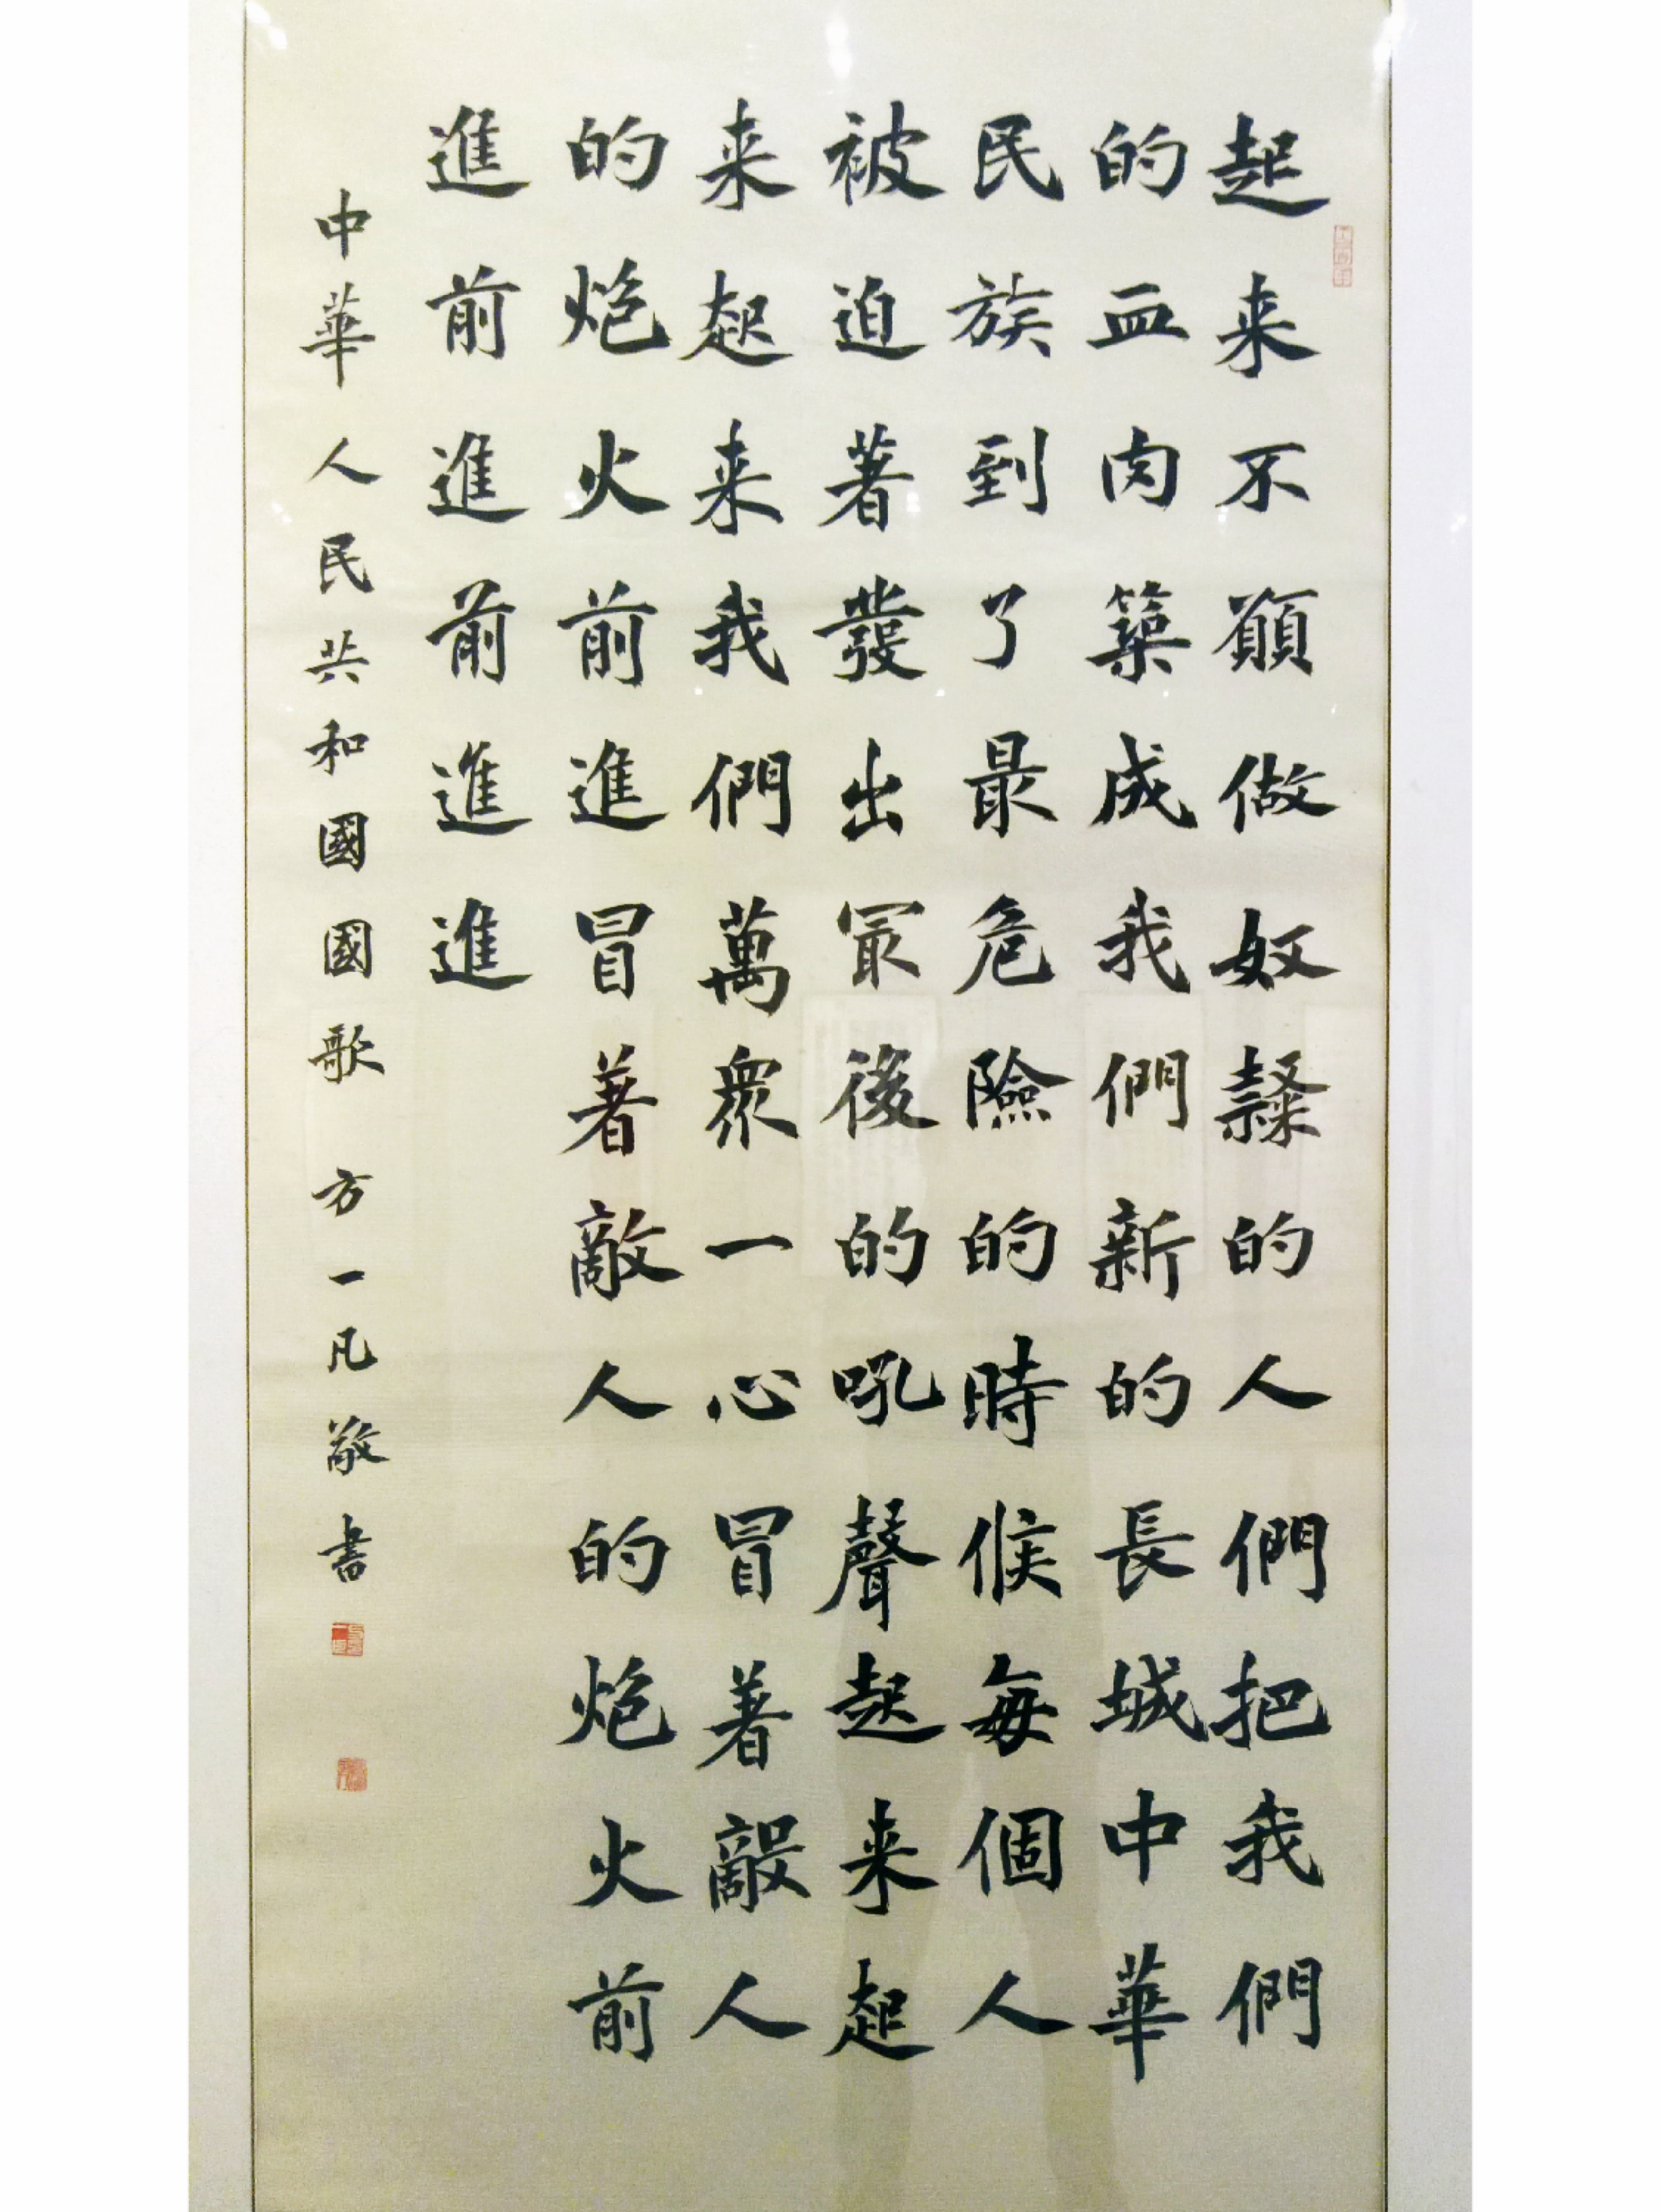 起来不願做奴隸的人們把我們
的血肉築成我們新的長城中華
民族到了最危險的時候每個人
被迫著發出冣後的吼聲起来起
来起来我們萬衆一心冒著敵人
的炮火前進冒著敵人的炮火前
進前進前進進
中華人民共和國國歌 方一凡敬書